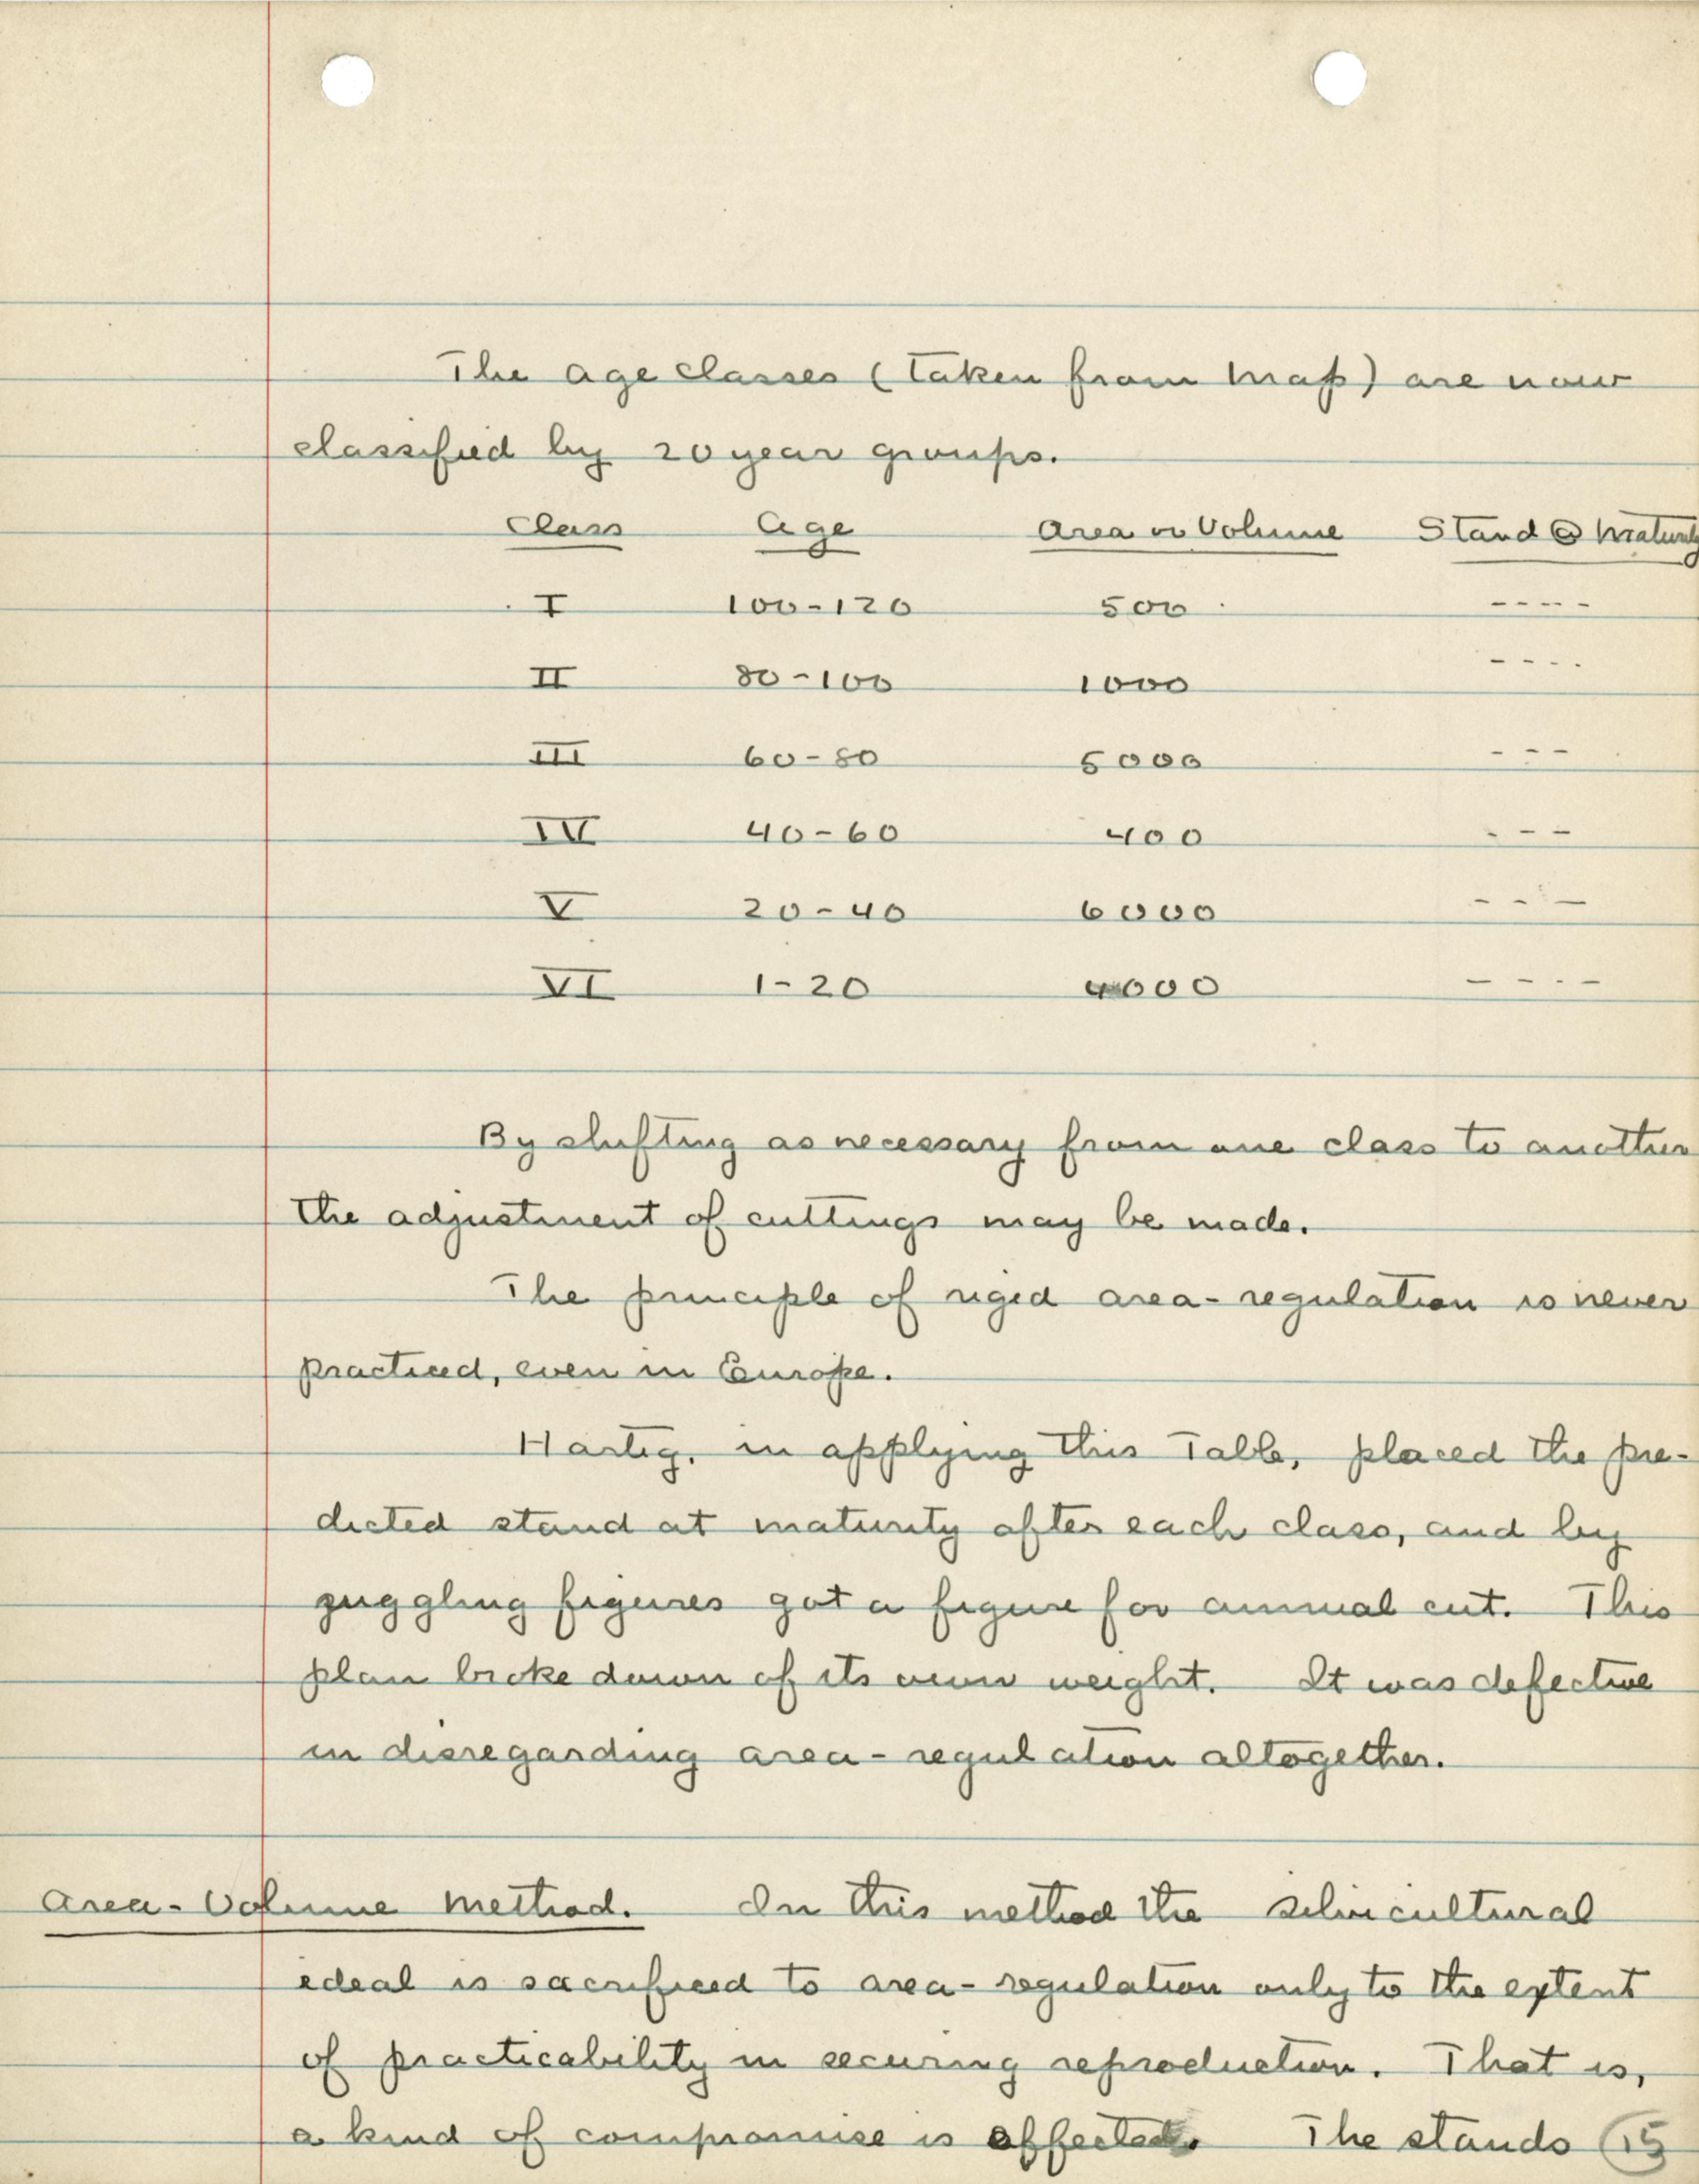 The age classes (taken from map) are now
classified by 20 year groups.
Class Age Area or Volume Stand @ Maturity
I 100-120 500 ----
II 80-100 1000 ----
III 60-80 5000 ---
IV 40-60 400 ---
V 20-40 6000 ---
VI 1-20 4000 ----
By shifting as necessary from one class to another
the adjustment of cuttings may be made.
The principle of rigid area-regulation is never
practiced, even in Europe.
Hartig, in applying this Table, placed the pre-
dicted stand at maturity after each class, and by
juggling figures got a figure for annual cut. This
plan broke down of its own weight. It was defective
in disregarding area-regulation altogether.
Area-Volume Method. In this method the silvicultural
ideal is sacrificed to area-regulation only to the extent
of practicability in securing reproduction. That is,
a kind of compromise is effected. The stands 15